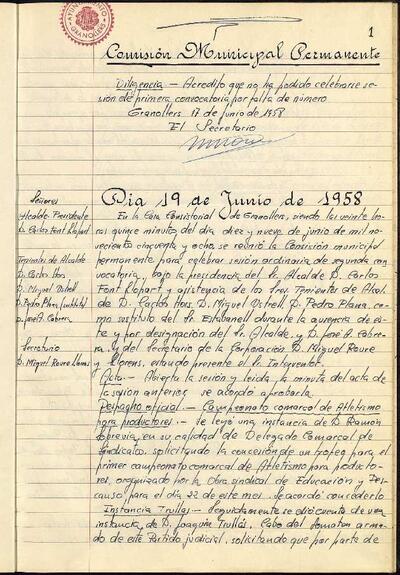 AYUNTAMIENTO
GRANOLLERS
1
Comisión Municipal Permanente
Diligencia - Acredito que no ha podido celebrarse se-
sión de primera convocatoria por falta de número
Granollers 17 de junio de 1958
El Secretario
Señores
Alcalde-Presidente
D. Carlos Font Llopart
Tenientes de Alcalde
D. Carlos Hors
D. Miguel Vistrell
D. Pedro Plana (sustituto)
D. José A. Cabrera
Secretario
D. Miguel Roure Llorens
Dia 19 de Junio de 1958
En la Casa Consistorial de Granollers, siendo las veinte ho-
ras quince minutos del día diez y nueve de junio de mil no-
vecientos cincuenta y ocho, se reunió la Comisión municipal
permanente para celebrar sesión ordinaria de segunda con-
vocatoria, bajo la presidencia del Sr. Alcalde D. Carlos
Font Llopart y asistencia de los Sres. Tenientes de Alcal-
de D. Carlos Hors, D. Miguel Vistrell D. Pedro Plana, co-
mo sustituto del Sr. Estabanell durante la ausencia de es-
te y por designación del Sr. Alcalde, y D. José A. Cabre-
ra, y del Secretario de la Corporación D. Miguel Roure
y Llorens, estando presente el Sr. Interventor.
Acta.- Abierta la sesión y leída la minuta del acta de
la sesión anterior, se acordó aprobarla.
Despacho oficial.- Campeonato comarcal de Atletismo
para productores.- Se leyó una instancia de D. Ramón
en su calidad de Delegado Comarcal de
Sindicatos, solicitando la concesión de un trofeo para el
primer campeonato comarcal de Atletismo para producto-
res, organizado por la Obra sindical de Educación y Des-
canso, para el día 22 de este mes. Se acordó concederlo
Instancia Trullás.- Seguidamente se dió cuenta de una
instancia de D. Joaquín Trullás, Cabo del Somatén arma-
do de este Partido judicial, solicitando que por parte de